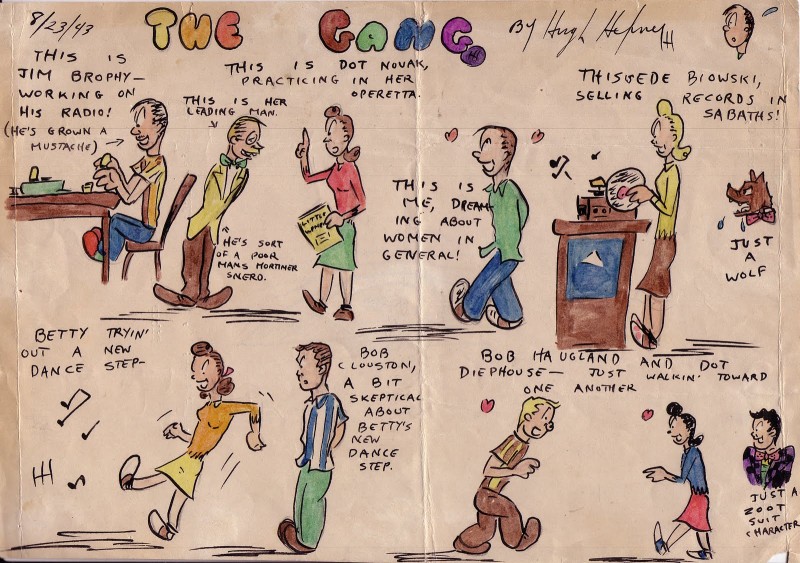 8/23/43
THE GANG
HH
By Hugh Hefner
HH
THIS IS
JIM BROPHY—
WORKING ON
HIS RADIO!
(HE'S GROWN A
MUSTACHE)
THIS IS HER
LEADING MAN.
THIS IS DOT NOVAK,
PRACTICING IN HER
OPERETTA.
LITTLE
WOMEN
HE'S SORT
OF A POOR
MANS MORTIMER
SNERD.
THIS IS
ME, DREAM-
ING ABOUT
WOMEN IN
GENERAL!
THIS IS EDE BIOWSKI,
SELLING RECORDS IN
SABATHS!
JUST
A
WOLF
BETTY TRYIN'
OUT A NEW
DANCE STEP—
HH
BOB
CLOUSTON,
A BIT
SKEPTICAL
ABOUT
BETTY'S
NEW
DANCE
STEP.
BOB HAUGLAND AND DOT
DIEPHOUSE— JUST WALKIN' TOWARD
ONE ANOTHER
JUST A
ZOOT
SUIT
CHARACTER